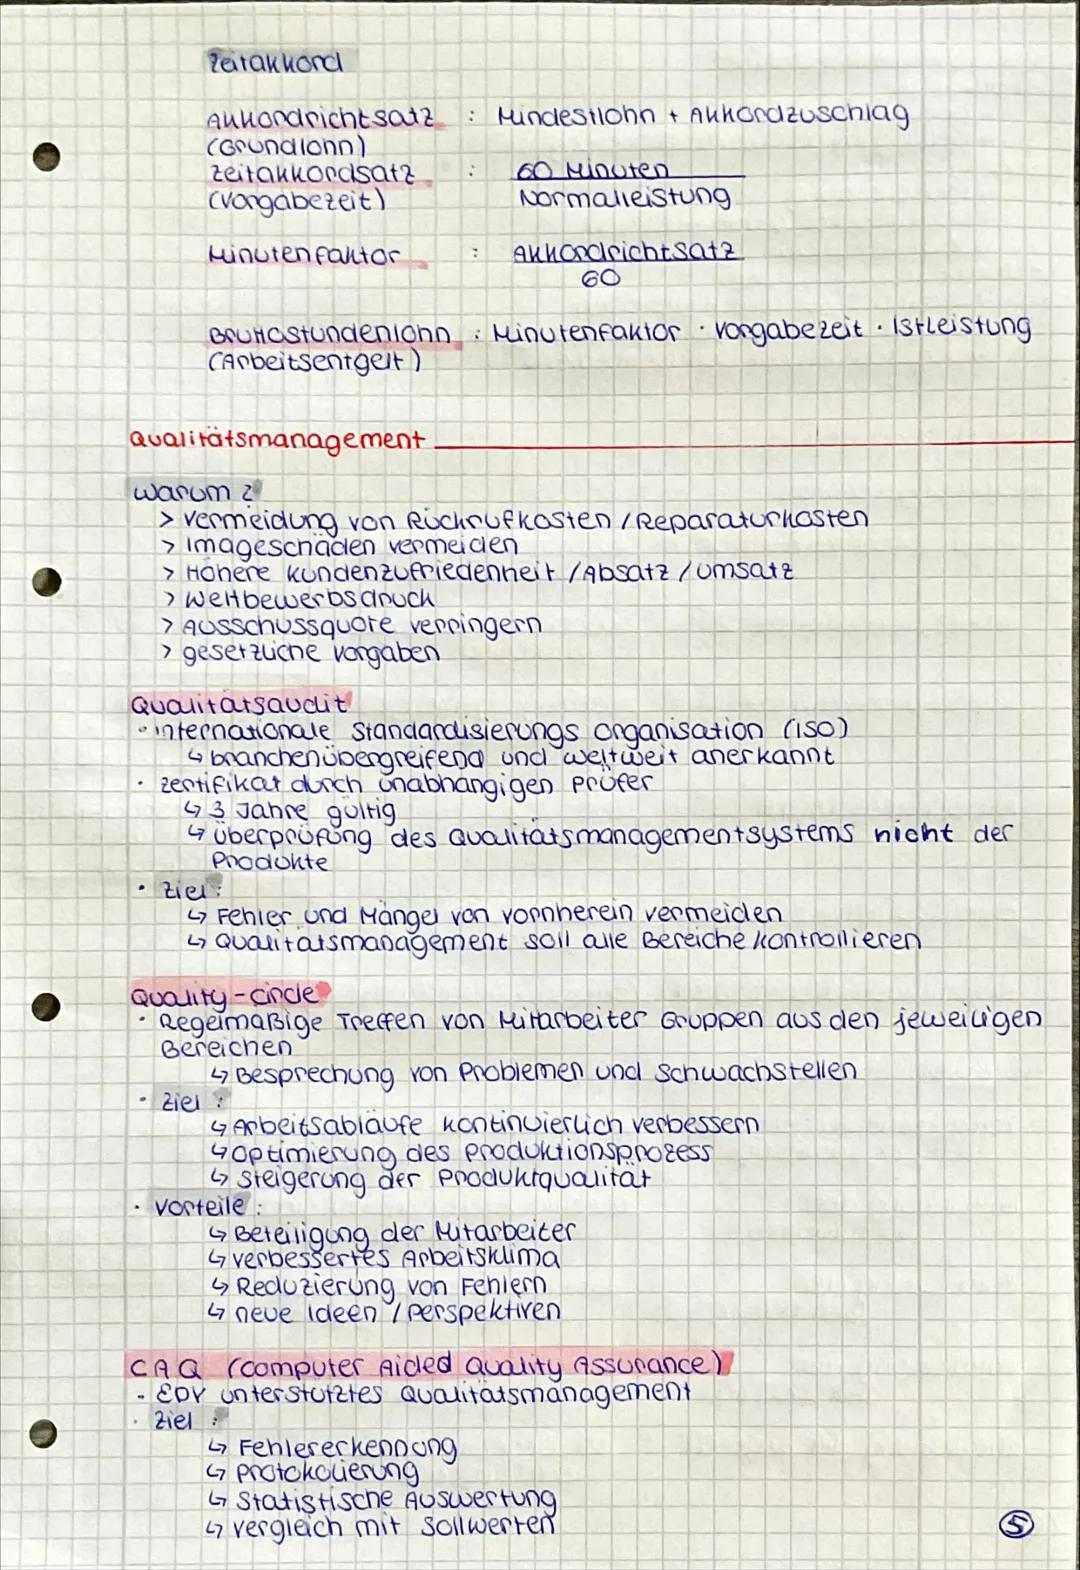 Zeitakkord
Akkordrichtsatz : Mindestlohn + Akkordzuschlag
(Grundlohn)
Zeitakkordsatz : 60 Minuten
(Vorgabezeit) Normalleistung
Minutenfaktor : Akkordrichtsatz
60
Bruttostundenlohn : Minutenfaktor · Vorgabezeit · Istleistung
(Arbeitsentgelt)
Qualitätsmanagement
Warum?
> Vermeidung von Rückrufkosten / Reparaturkosten
> Imageschäden vermeiden
> Höhere Kundenzufriedenheit / Absatz / Umsatz
> Wettbewerbsdruck
> Ausschussquote verringern
> gesetzliche Vorgaben
Qualitätsaudit
· Internationale Standardisierungs Organisation (ISO)
↳ branchenübergreifend und weltweit anerkannt
· Zertifikat durch unabhängigen Prüfer
↳ 3 Jahre gültig
↳ Überprüfung des Qualitätsmanagementsystems nicht der
Produkte
· Ziel:
↳ Fehler und Mängel von vornherein vermeiden
↳ Qualitätsmanagement soll alle Bereiche kontrollieren
Quality-circle
· Regelmäßige Treffen von Mitarbeiter Gruppen aus den jeweiligen
Bereichen
↳ Besprechung von Problemen und Schwachstellen
· Ziel:
↳ Arbeitsabläufe kontinuierlich verbessern
↳ Optimierung des Produktionsprozess
↳ Steigerung der Produktqualität
· Vorteile:
↳ Beteiligung der Mitarbeiter
↳ verbessertes Arbeitsklima
↳ Reduzierung von Fehlern
↳ neue Ideen / Perspektiven
CAQ (Computer Aided Quality Assurance)
- EDV unterstütztes Qualitätsmanagement
· Ziel:
↳ Fehlererkennung
↳ Protokolierung
↳ Statistische Auswertung
↳ Vergleich mit Sollwerten
5